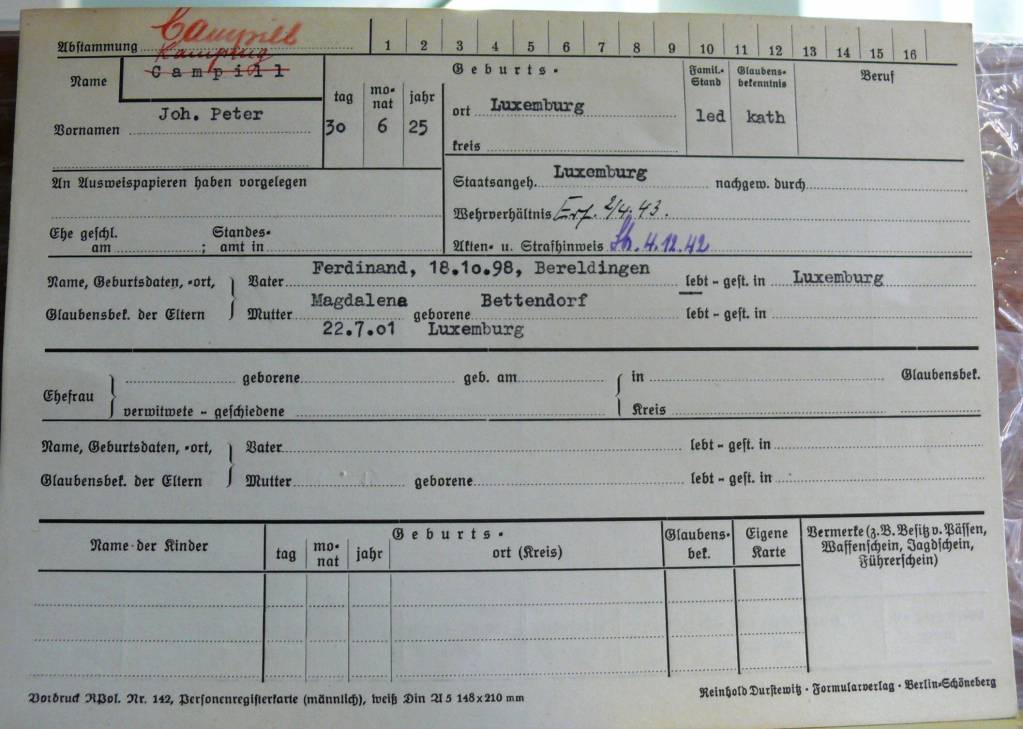 Campill
Abstammung
Name Campill
1 2 3 4 5 6 7 8 9 10 11 12 13 14 15 16
tag monat jahr
Geburts-
Famil.-Stand
Glaubens-bekenntnis
Beruf
Vornamen Joh. Peter
30 6 25
ort Luxemburg
led kath
kreis
An Ausweispapieren haben vorgelegen
Staatsangeh. Luxemburg nachgew. durch
Wehrverhältnis Erf. 2/4.43.
Ehe geschl. am ; Standes-amt in
Akten- u. Strafhinweis 4.12.42
Name, Geburtsdaten, -ort, Vater Ferdinand, 18.1o.98, Bereldingen lebt - gest. in Luxemburg
Glaubensbek. der Eltern Mutter Magdalena geborene Bettendorf lebt - gest. in
22.7.o1 Luxemburg
Ehefrau geborene geb. am in Glaubensbek.
verwitwete - geschiedene Kreis
Name, Geburtsdaten, -ort, Vater lebt - gest. in
Glaubensbek. der Eltern Mutter geborene lebt - gest. in
Name der Kinder
Geburts-
tag monat jahr ort (Kreis)
Glaubens-bek.
Eigene Karte
Vermerke (z.B. Besitz v. Pässen,
Waffenschein, Jagdschein,
Führerschein)
Vordruck RPol. Nr. 142, Personenregisterkarte (männlich), weiß Din A 5 148 x 210 mm
Reinhold Durstewitz · Formularverlag · Berlin-Schöneberg